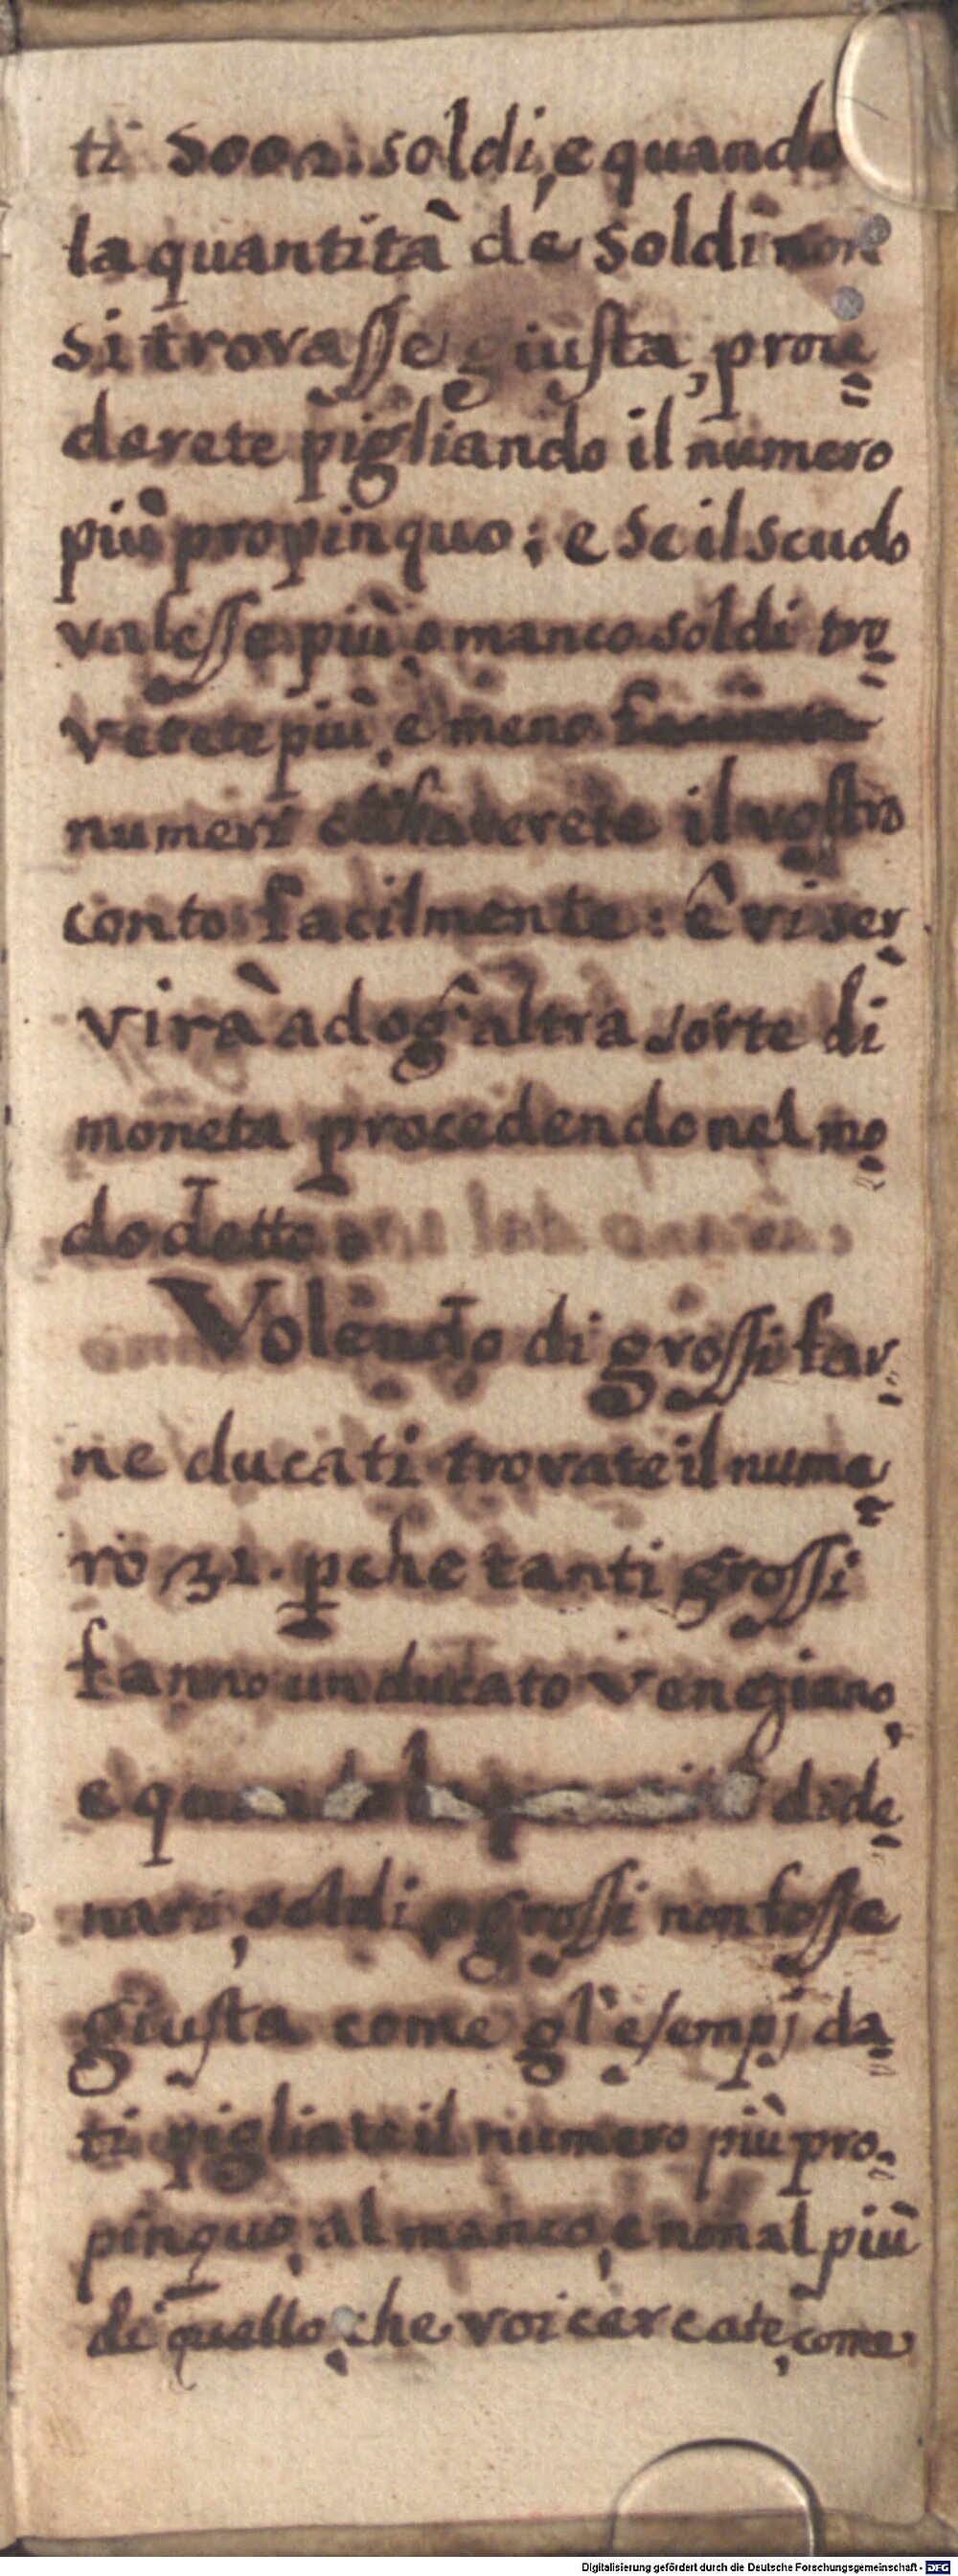 ti 5002. soldi, e quando
la quantità de soldi non
si trovasse giusta, proce=
derete pigliando il numero
più propinquo; e se il scudo
valesse più o manco soldi tro=
verete più, e meno
numeri caverete il vostro
conto facilmente: e vi ser=
virà ad og' altra sorte di
moneta procedendo nel mo=
do detto
Volendo di grossi far=
ne ducati trovate il nume=
ro 31. pche tanti grossi
fanno un ducato Venegiano,
e quando la quantità di de=
nari, soldi, o grossi non fosse
giusta come gl' esempj da=
ti pigliate il numero più pro=
pinquo, al manco, e non al più
di quello, che voi cercate, come
Digitalisierung gefördert durch die Deutsche Forschungsgemeinschaft - DFG